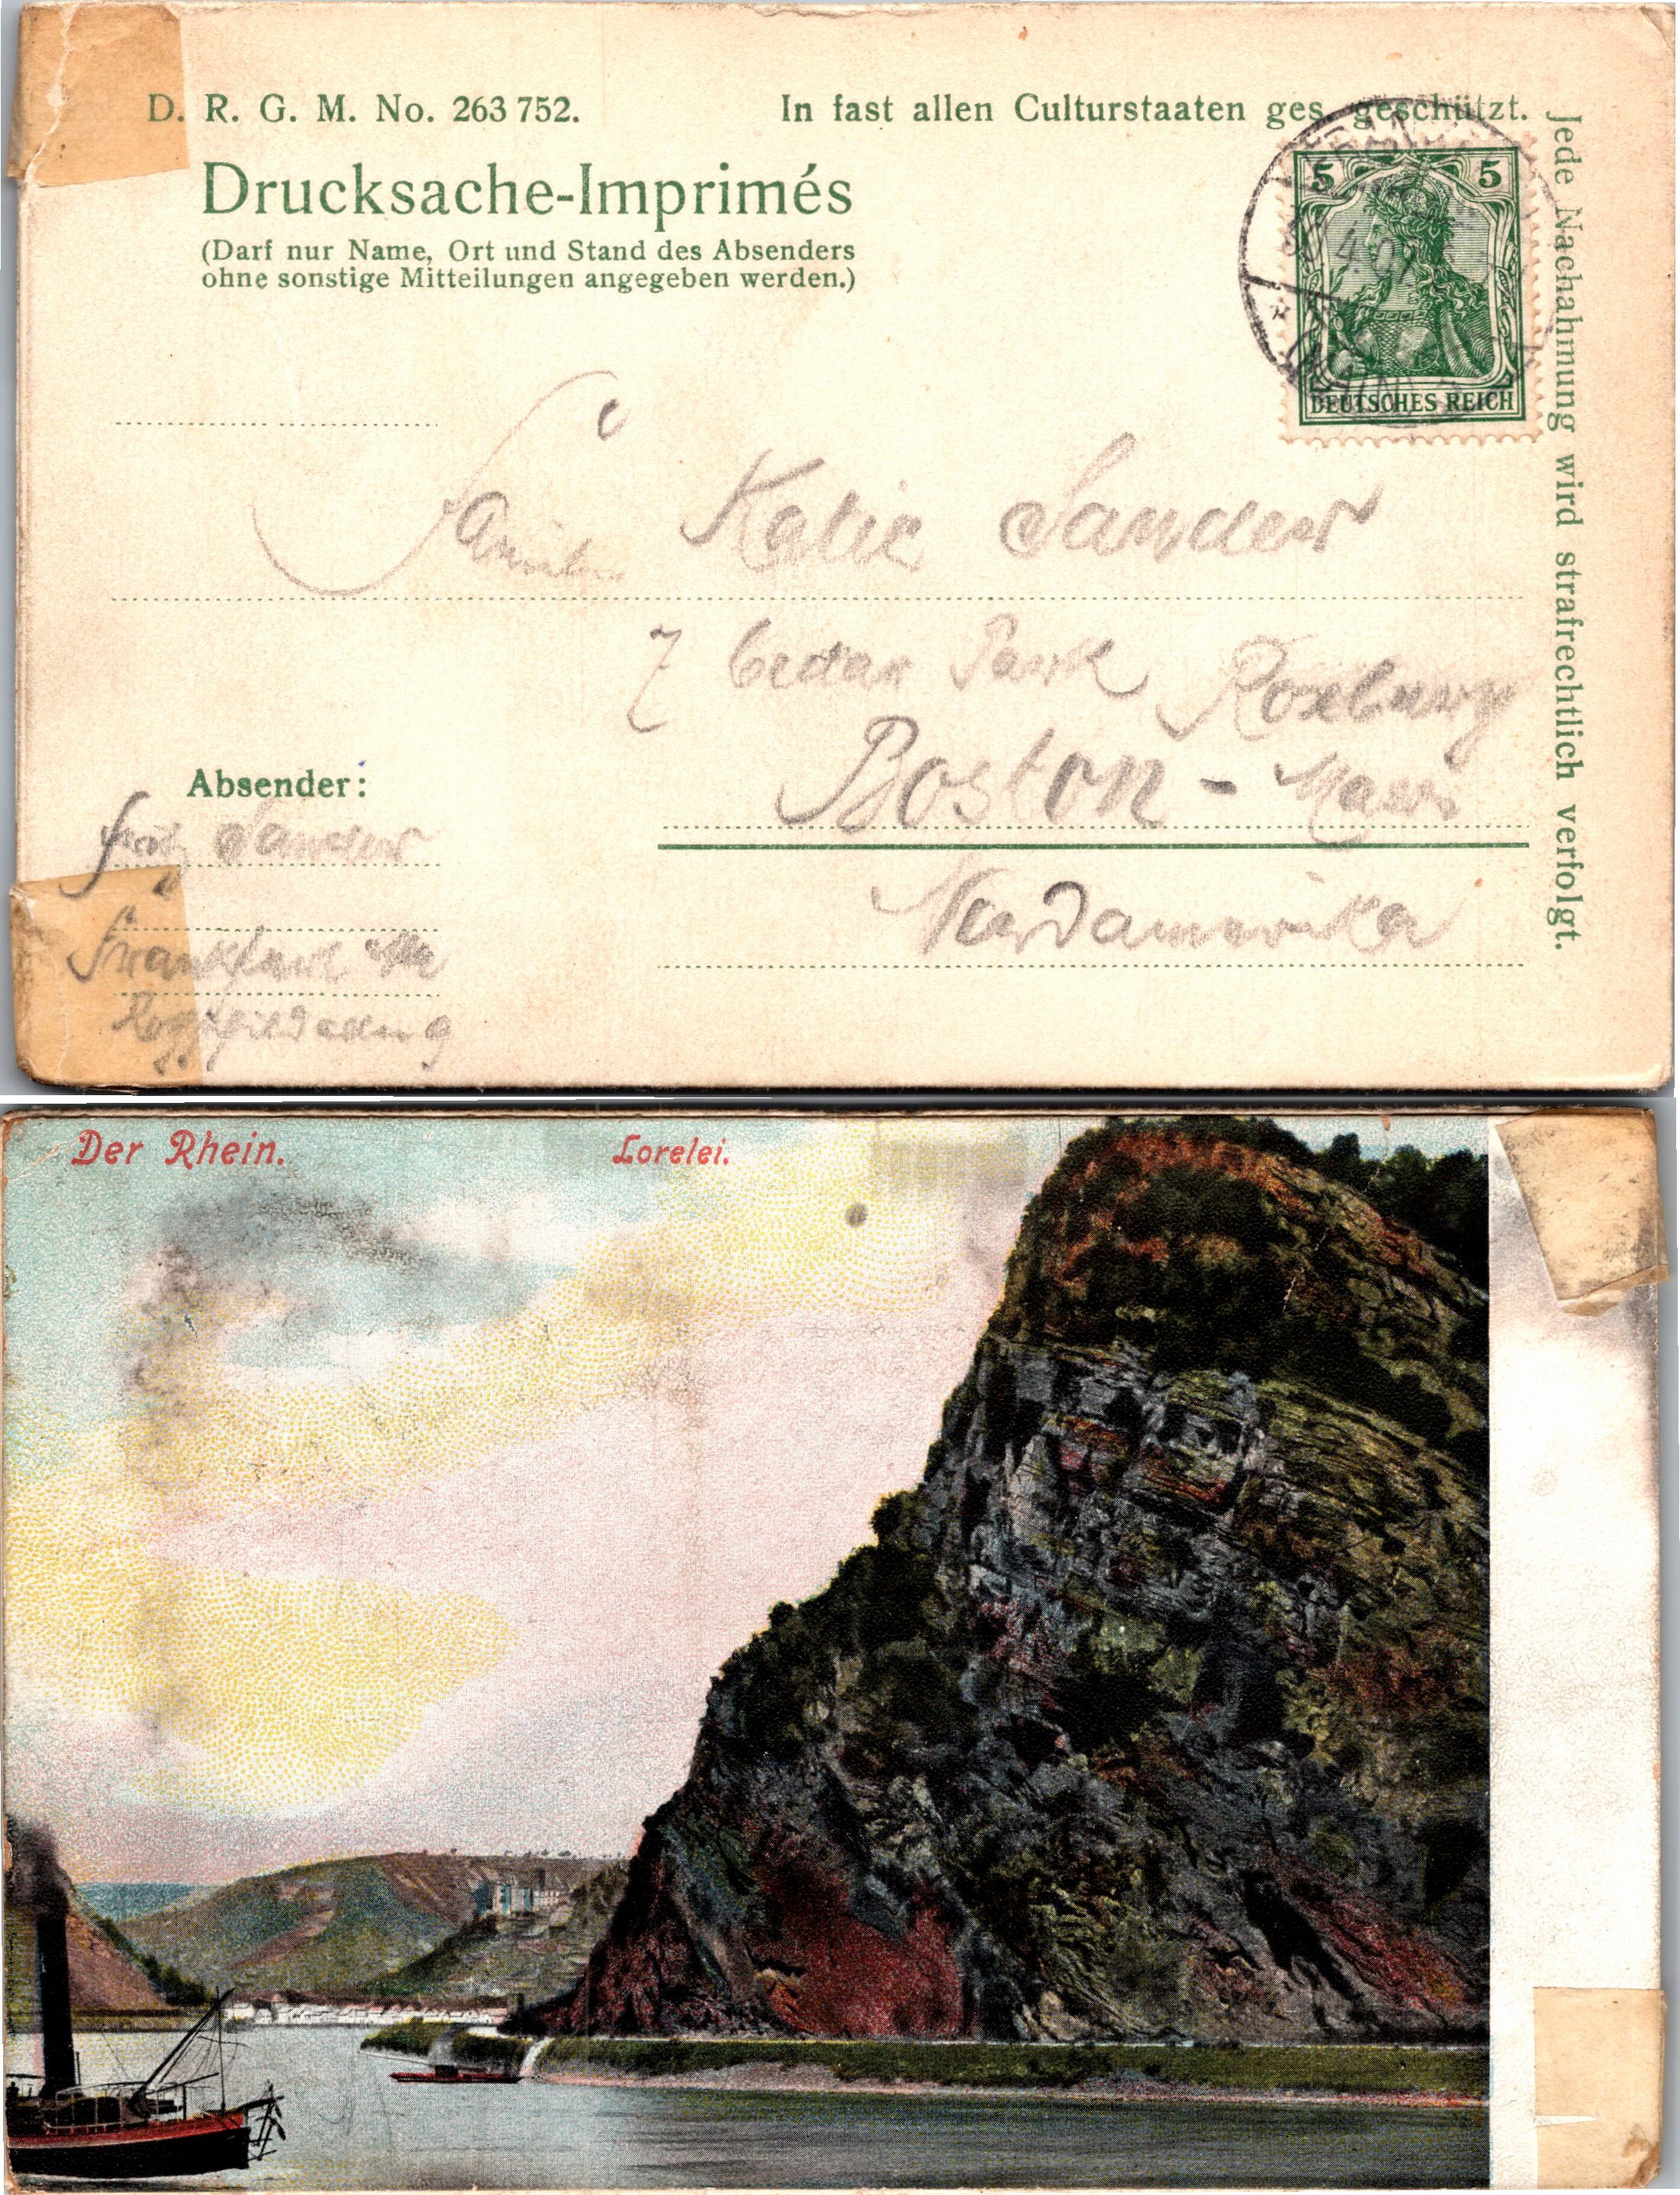 D. R. G. M. No. 263 752. In fast allen Culturstaaten ges. geschützt.
Drucksache-Imprimés
(Darf nur Name, Ort und Stand des Absenders
ohne sonstige Mitteilungen angegeben werden.)
Jede Nachahmung wird strafrechtlich verfolgt.
5 5
4.07
DEUTSCHES REICH
Katie Sander
7 Cedar Park Roxburg
Boston - Mass
Nordamerika
Absender:
Fritz Sander
Frankfurt a/M
Der Rhein. Lorelei.